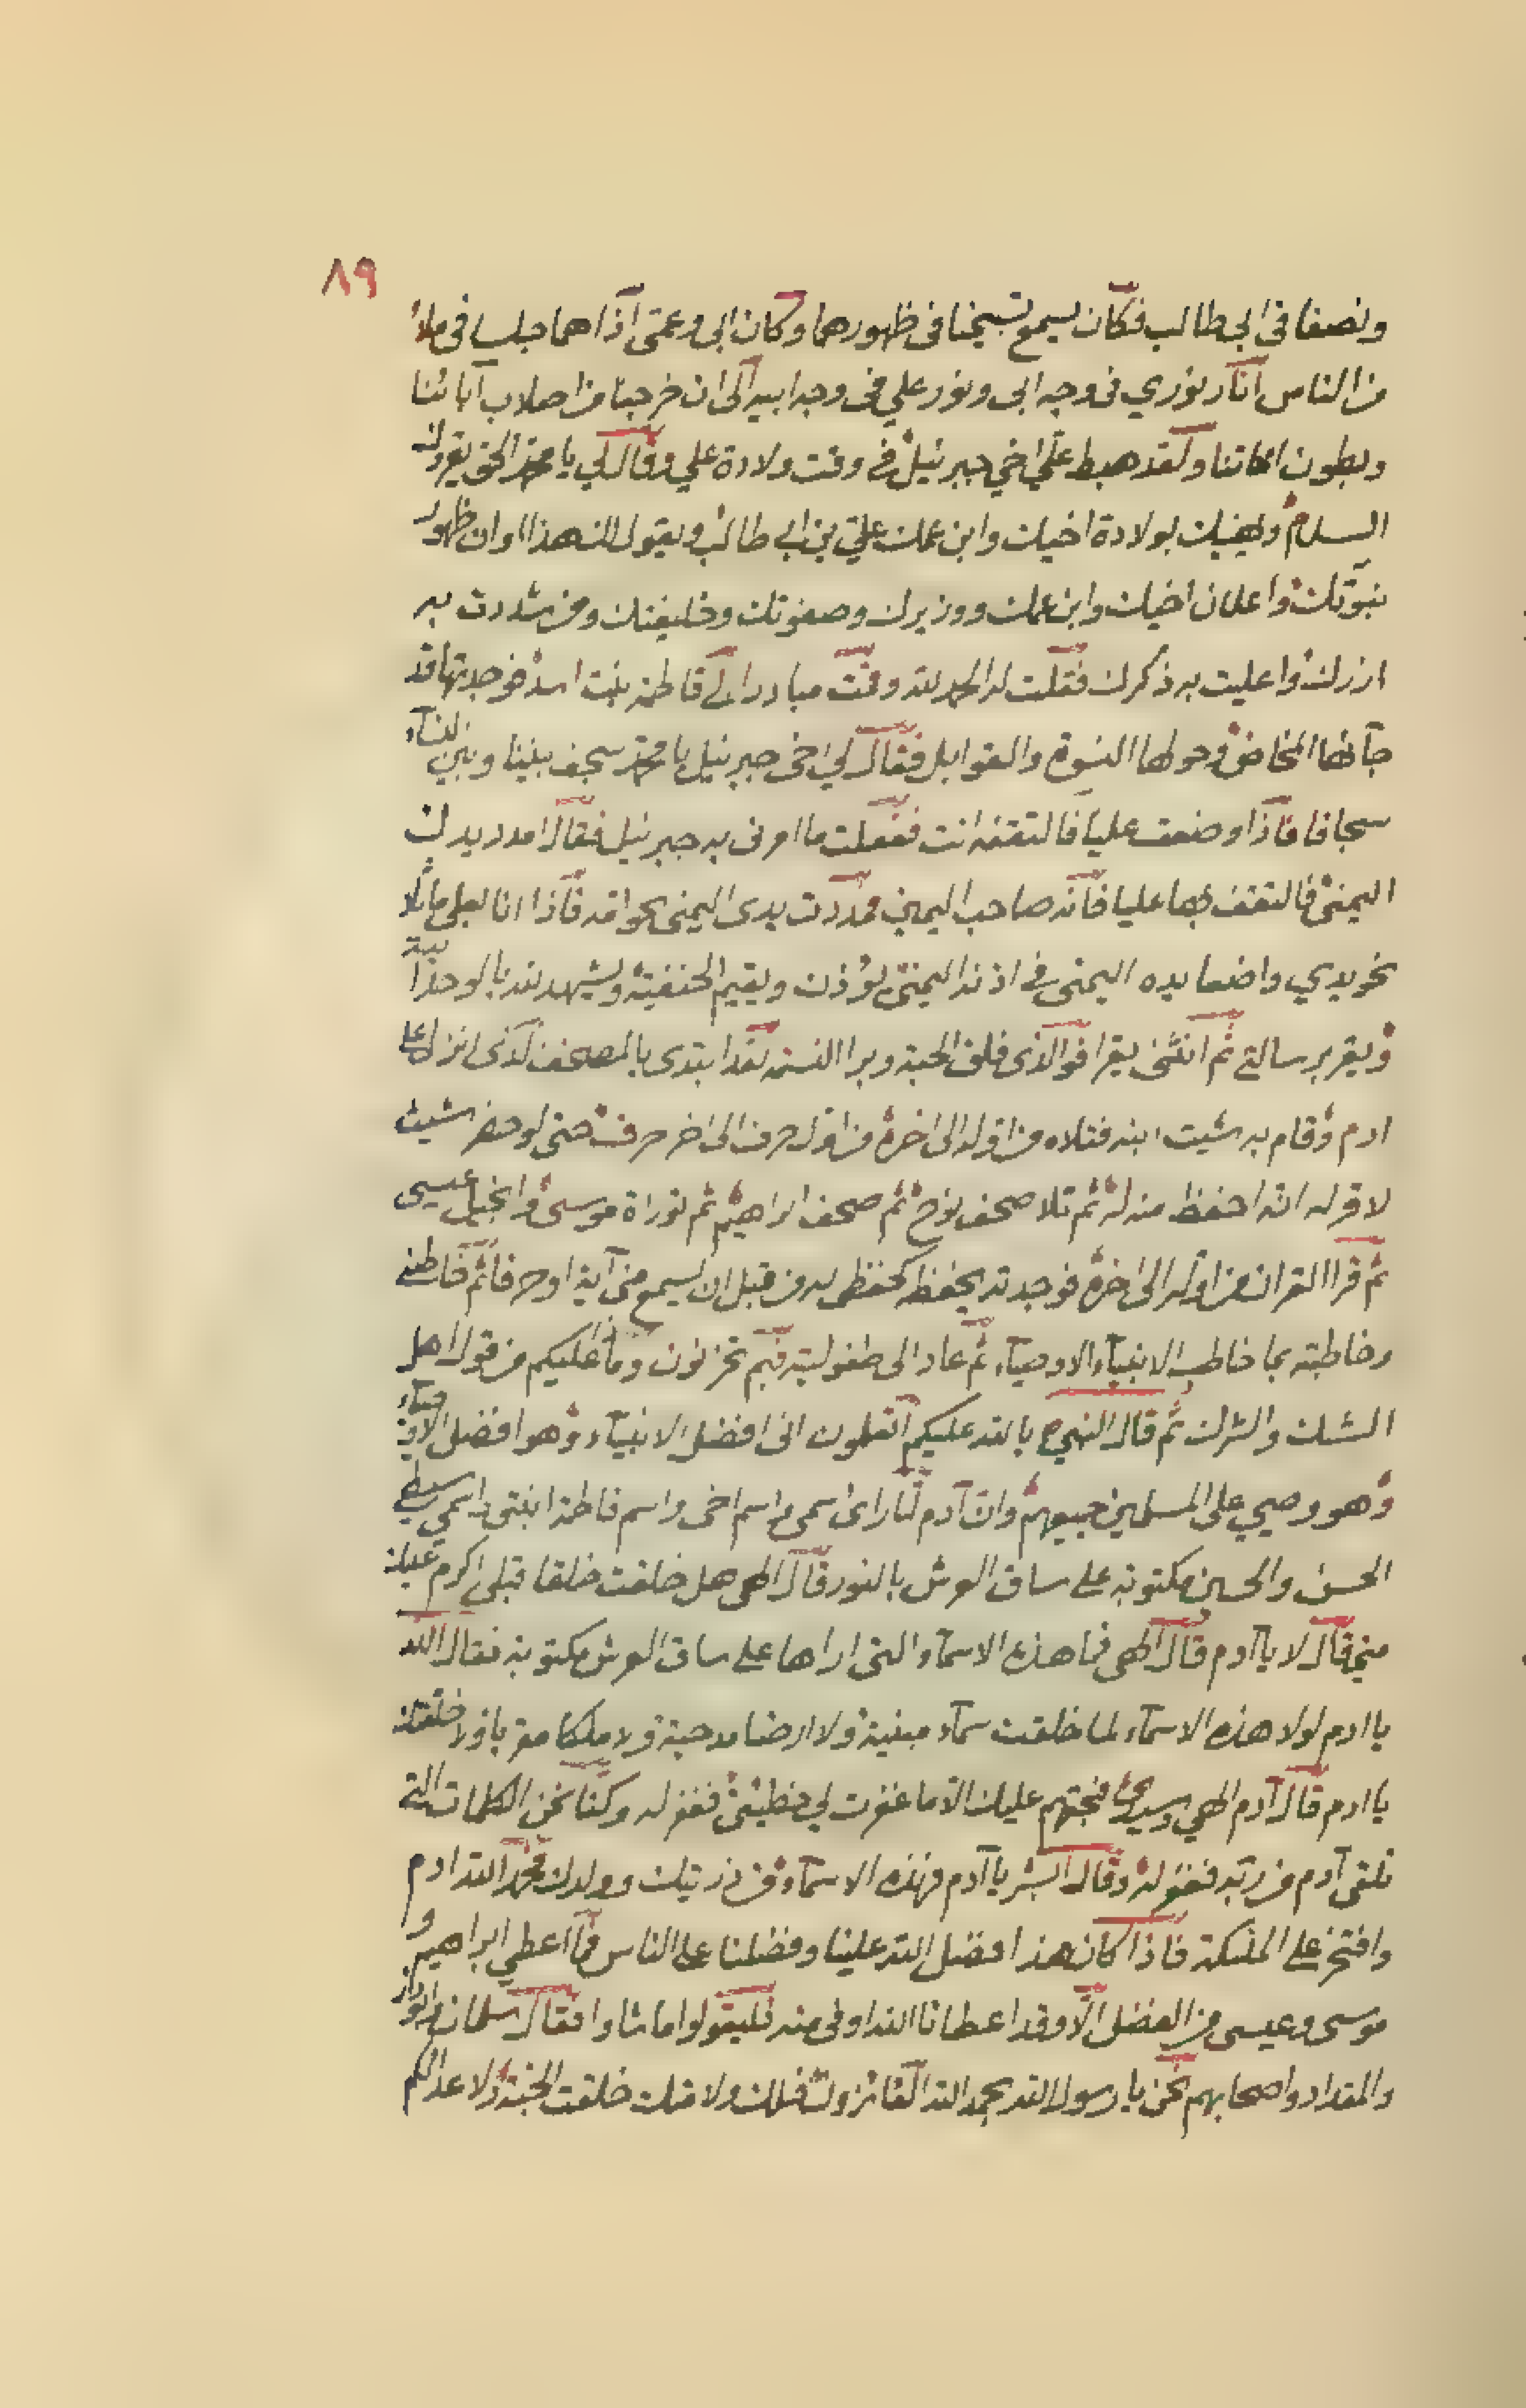 ٨٩
ونصفا فى ابى طالب فكان يسمع تسبيحنا فى ظهورهما وكان ابى وعمى اذا هما جلسا فى ملاء
من الناس انار نوري فى وجه ابى ونور علي فى وجه ابيه الى ان خرجنا من اصلاب آبائنا
وبطون امهاتنا ولقد هبط علي اخي جبرئيل فى وقت ولادة علي وقال لي يا محمد الحق يقروك
السلام ويهنيك بولادة اخيك وابن عمك علي بن ابى طالب ويقول لك هذا اوان ظهور
نبوتك واعلان اخيك وابن عمك ووزيرك وصفوتك وخليفتك ومن شددت به
ازرك واعليت به ذكرك فقلت له الحمد لله وقمت مبادرا الى فاطمة بنت اسد فوجدتها قد
جآئها المخاض وحولها النسوة والقوابل فقال لي اخى جبرئيل يا محمد سجف بيننا وبين النسآء
سجافا فاذا وضعت عليا فالتقفه انت ففعلت ما امرنى به جبرئيل فقال امدد يدك
اليمنى فالتقف بها عليا فانه صاحب اليمين فمددت يدى اليمنى نحو امه فاذا انا بعلى مائلا
نحو يدي واضعا يده اليمنى فى اذنه اليمنى يؤذن ويقيم الحنفية ويشهد لله بالوحدانية
ويقر برسالتى ثم انثنى يقرا فو الذى فلق الحبة وبرا النسمه لقد ابتدى بالمصحف الذى انزل على
ادم وقام به شيث ابنه فتلاه من اوله الى اخره من اول حرف الى اخر حرف حتى لو حضر شيث
لاقر له انه احفظ منه له ثم تلا صحف نوح ثم صحف ابراهيم ثم توراة موسى وانجيل عيسى
ثم قرا القران من اوله الى اخره فوجدته يحفظه كحفظى له من قبل ان يسمع منى آية او حرفا ثم خاطبنى
وخاطبته بما خاطب الانبيآء الاوصيآء ثم عاد الى طفوليته فبم تحزنون وما عليكم من قول اهل
الشك والشرك ثم قال النبي بالله عليكم اتعلمون انى افضل الانبيآء وهو افضل الاوصيآء
وهو وصيي على المسلمين جميعهم وان آدم لما راى اسمى واسم اخى واسم فاطمة ابنتى واسمي سبطي
الحسن والحسين مكتوبة على ساق العرش بالنور قال الهى هل خلقت خلقا قبلى اكرم عليك
منى قال لا يا آدم قال الهى فما هذه الاسمآء التى اراها على ساق العرش مكتوبة فقال الله
يا ادم لولا هذه الاسمآء لما خلقت سمآء مبنية ولا ارضا مدحية ولا ملكا مقربا ولا خلقتك
يا ادم قال آدم الهي وسيدي فبحقهم عليك الا ما غفرت لي خطيئتى فغفر له وكنا نحن الكلمات التى
تلقى آدم من ربه فغفر له وقال ابشر يا آدم فهذه الاسمآء من ذريتك وولدك فحمد الله ادم
وافتخر على الملئكة فاذا كان هذا فضل الله علينا وفضلنا على الناس فما اعطي ابراهيم و
موسى وعيسى من الفضل الا وقد اعطانا الله اوفى منه فليقولوا ما شاوا فقال سلمان وابوذر
والمقداد واصحابهم نحن يا رسول الله بحمد الله الفائزون فلك ولا خلقت الجنة ولاعدائكم